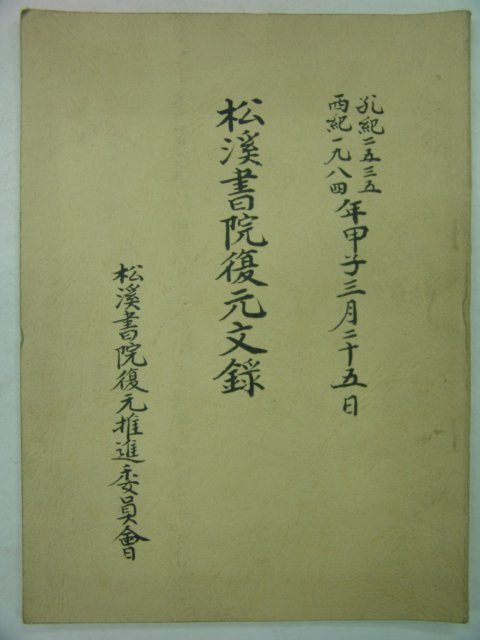 孔紀二五三五
西紀一九八四年甲子三月二十五日
松溪書院復元文錄
松溪書院復元推進委員會